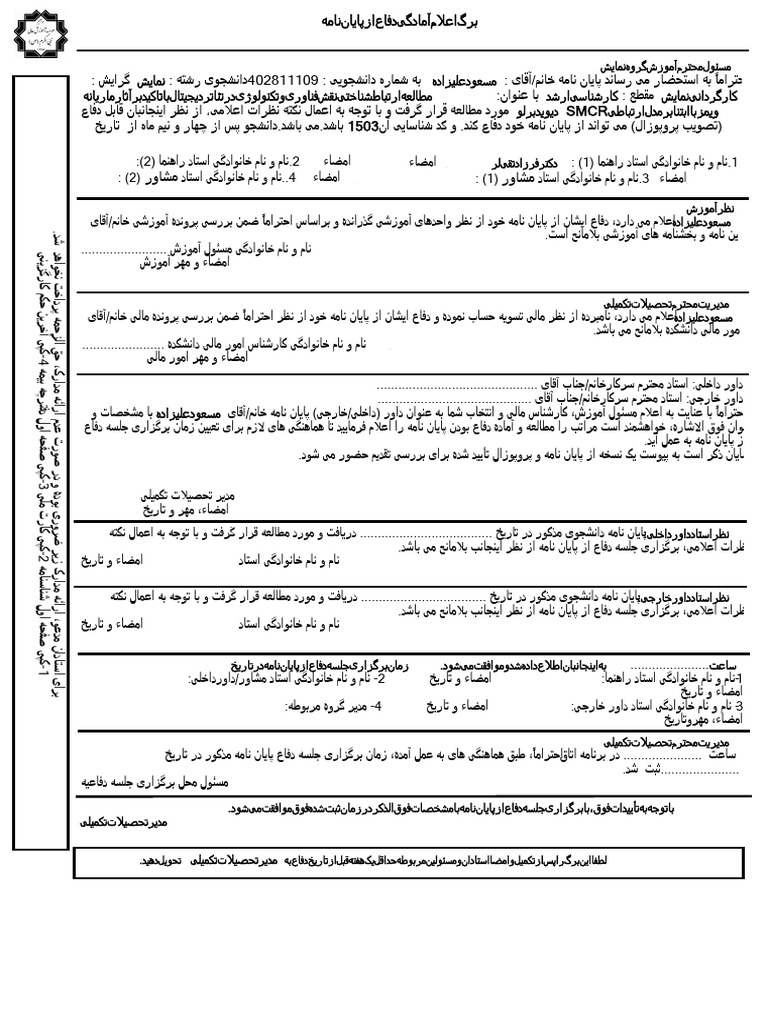 برگ اعلام آمادگی دفاع از پایان نامه
مسئول محترم آموزش گروه نمایش
حتراماً به استحضار می رساند پایان نامه خانم/آقای : مسعود علیزاده به شماره دانشجویی : 402811109دانشجوی رشته : نمایش گرایش :
کارگردانی نمایش مقطع : کارشناسی ارشد با عنوان: مطالعه ارتباط شناختی نقش فناوری و تکنولوژی در تئاتر دیجیتال با تاکید بر آثار ماریانه
ویمز با ابتنا بر مدل ارتباطی SMCR دیوید برلو مورد مطالعه قرار گرفت و با توجه به اعمال نکته نظرات اعلامی، از نظر اینجانبان قابل دفاع
باشد.می باشد.دانشجو پس از چهار و نیم ماه از تاریخ (تصویب پروپوزال) می تواند از پایان نامه خود دفاع کند. و کد شناسایی آن1503
1.نام و نام خانوادگی استاد راهنما (1) : دکتر فرزاد تقی لر امضاء 2.نام و نام خانوادگی استاد راهنما (2): امضاء
3.نام و نام خانوادگی استاد مشاور (1) : امضاء 4..نام و نام خانوادگی استاد مشاور (2) : امضاء
نظر آموزش
احتراماً ضمن بررسی پرونده آموزشی خانم/آقای مسعود علیزاده اعلام می دارد، دفاع ایشان از پایان نامه خود از نظر واحدهای آموزشی گذرانده و براساس
ین نامه و بخشنامه های آموزشی بلامانع است.
نام و نام خانوادگی مسئول آموزش ........................
امضاء و مهر آموزش
مدیریت محترم تحصیلات تکمیلی
احتراماً ضمن بررسی پرونده مالی خانم/آقای مسعود علیزاده اعلام می دارد، نامبرده از نظر مالی تسویه حساب نموده و دفاع ایشان از پایان نامه خود از نظر
مور مالی دانشکده بلامانع می باشد.
نام و نام خانوادگی کارشناس امور مالی دانشکده .......................
امضاء و مهر امور مالی
داور داخلی: استاد محترم سرکارخانم/جناب آقای .............................................
داور خارجی: استاد محترم سرکارخانم/جناب آقای .............................................
حتراماً با عنایت به اعلام مسئول آموزش، کارشناس مالی و انتخاب شما به عنوان داور (داخلی/خارجی) پایان نامه خانم/آقای مسعود علیزاده با مشخصات و
وان فوق الاشاره، خواهشمند است مراتب را مطالعه و آماده دفاع بودن پایان نامه را اعلام فرمایید تا هماهنگی های لازم برای تعیین زمان برگزاری جلسه دفاع
ز پایان نامه به عمل آید.
شایان ذکر است به پیوست یک نسخه از پایان نامه و پروپوزال تأیید شده برای بررسی تقدیم حضور می شود.
مدیر تحصیلات تکمیلی
امضاء، مهر و تاریخ
نظر استاد داور داخلی پایان نامه دانشجوی مذکور در تاریخ ................................... دریافت و مورد مطالعه قرار گرفت و با توجه به اعمال نکته
نظرات اعلامی، برگزاری جلسه دفاع از پایان نامه از نظر اینجانب بلامانع می باشد.
نام و نام خانوادگی استاد امضاء و تاریخ
نظر استاد داور خارجی پایان نامه دانشجوی مذکور در تاریخ ................................... دریافت و مورد مطالعه قرار گرفت و با توجه به اعمال نکته
نظرات اعلامی، برگزاری جلسه دفاع از پایان نامه از نظر اینجانب بلامانع می باشد.
نام و نام خانوادگی استاد امضاء و تاریخ
زمان برگزاری جلسه دفاع از پایان نامه در تاریخ ساعت...................... به اینجانبان اطلاع داده شد و موافقت می شود.
1-نام و نام خانوادگی استاد راهنما: امضاء و تاریخ 2- نام و نام خانوادگی استاد مشاور/داورداخلی:
امضاء و تاریخ
3- نام و نام خانوادگی استاد داور خارجی: امضاء و تاریخ 4- مدیر گروه مربوطه:
امضاء، مهروتاریخ
مدیریت محترم تحصیلات تکمیلی
احتراماً، طبق هماهنگی های به عمل آمده، زمان برگزاری جلسه دفاع پایان نامه مذکور در تاریخ ساعت ...................... در برنامه اتاق
......................ثبت شد.
مسئول محل برگزاری جلسه دفاعیه
با توجه به تأییدات فوق، با برگزاری جلسه دفاع از پایان نامه با مشخصات فوق الذکر در زمان ثبت شده فوق موافقت می شود.
مدیر تحصیلات تکمیلی
لطفا این برگ را پس از تکمیل و امضا استادان و مسئولین مربوطه حداقل یک هفته قبل از تاریخ دفاع به مدیر تحصیلات تکمیلی تحویل دهید.
برای استادان مدعو، ارائه مدارک زیر ضروری بوده و در صورت عدم ارائه مدارک، حق الزحمه پرداخت نخواهد شد.
1-کپی صفحه اول شناسنامه 2-کپی کارت ملی 3-کپی صفحه اول دفترچه بیمه 4-کپی آخرین حکم کارگزینی